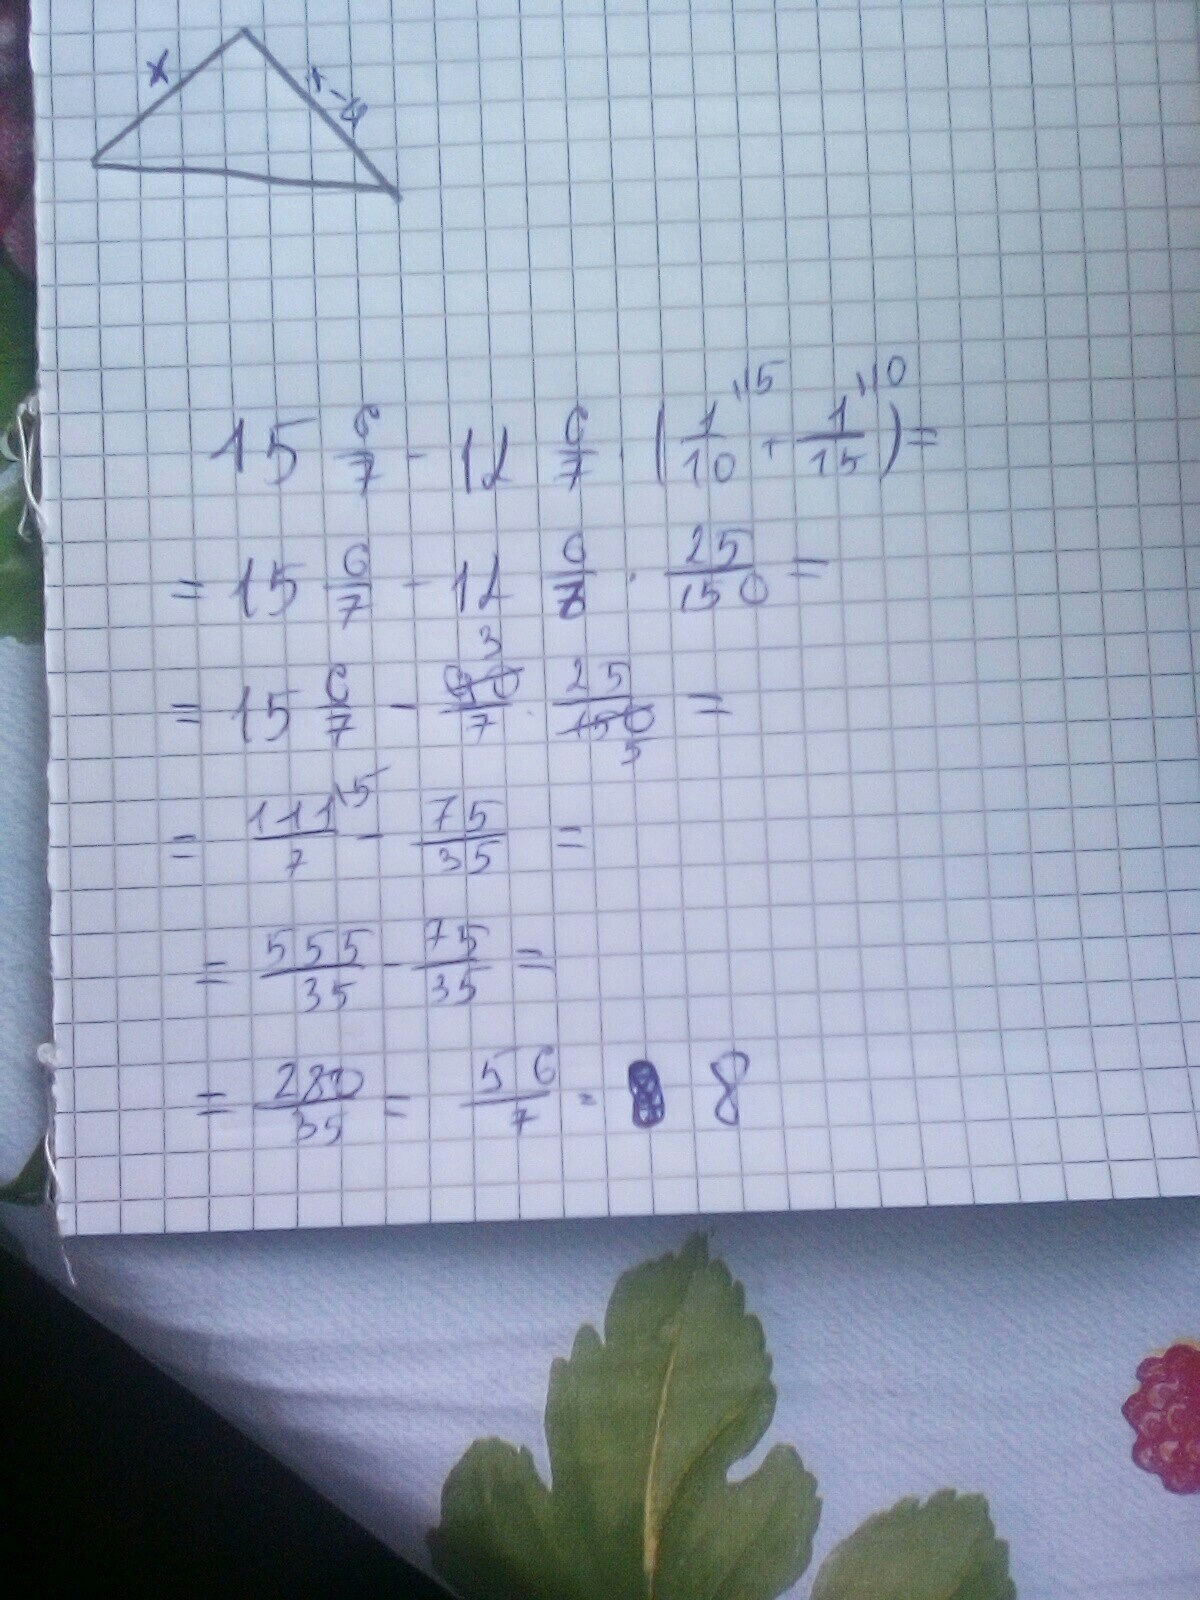 x x-4
15 6/7 - 12 6/7 · (1/10 \15 + 1/15 \10) =
= 15 6/7 - 12 6/7 · 25/150 =
= 15 6/7 - 90/7 · 25/150 = 3 5
= 111/7 \5 - 75/35 =
= 555/35 - 75/35 =
= 280/35 = 56/7 = 8